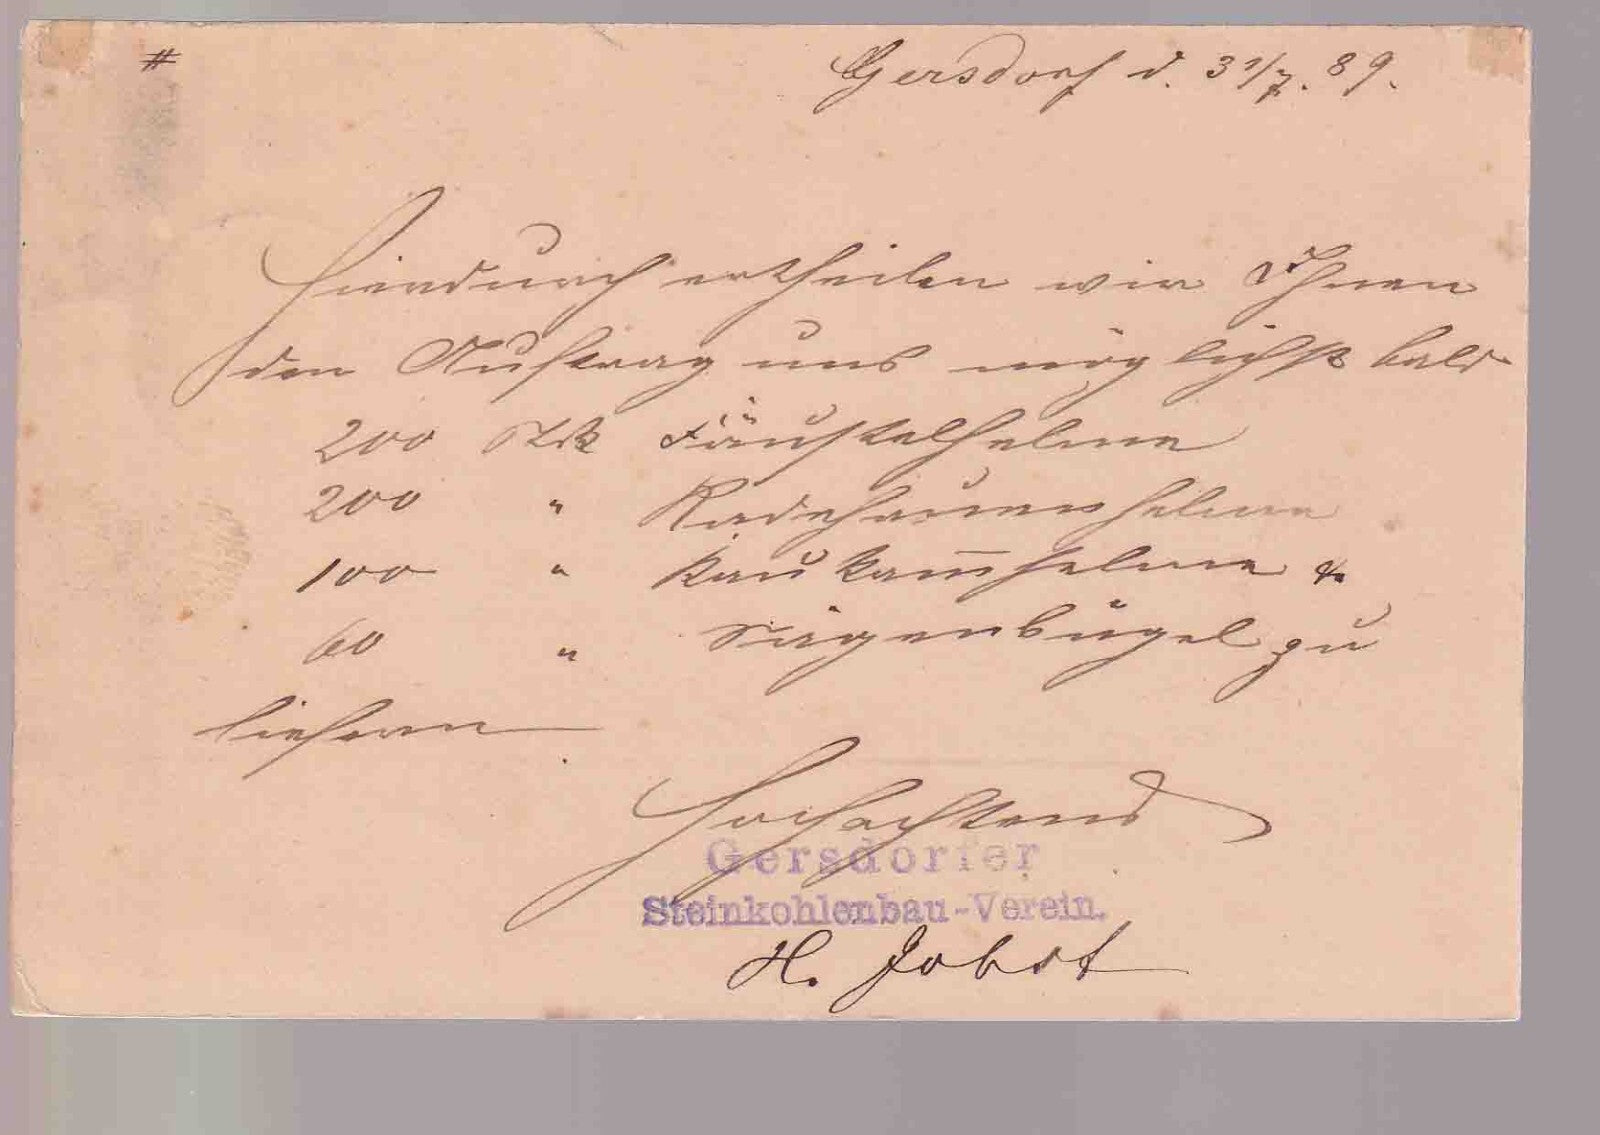 #
Gersdorf d. 31/7. 89.
Hierdurch ertheilen wir Ihnen
den Auftrag uns möglichst bald
200 Stk Fäustelhelme
200 " Radehauenhelme
100 " Kaukam̅helme &
60 " Sägenbügel zu
liefern
Hochachtend
Gersdorfer
Steinkohlenbau-Verein.
H. Jobst